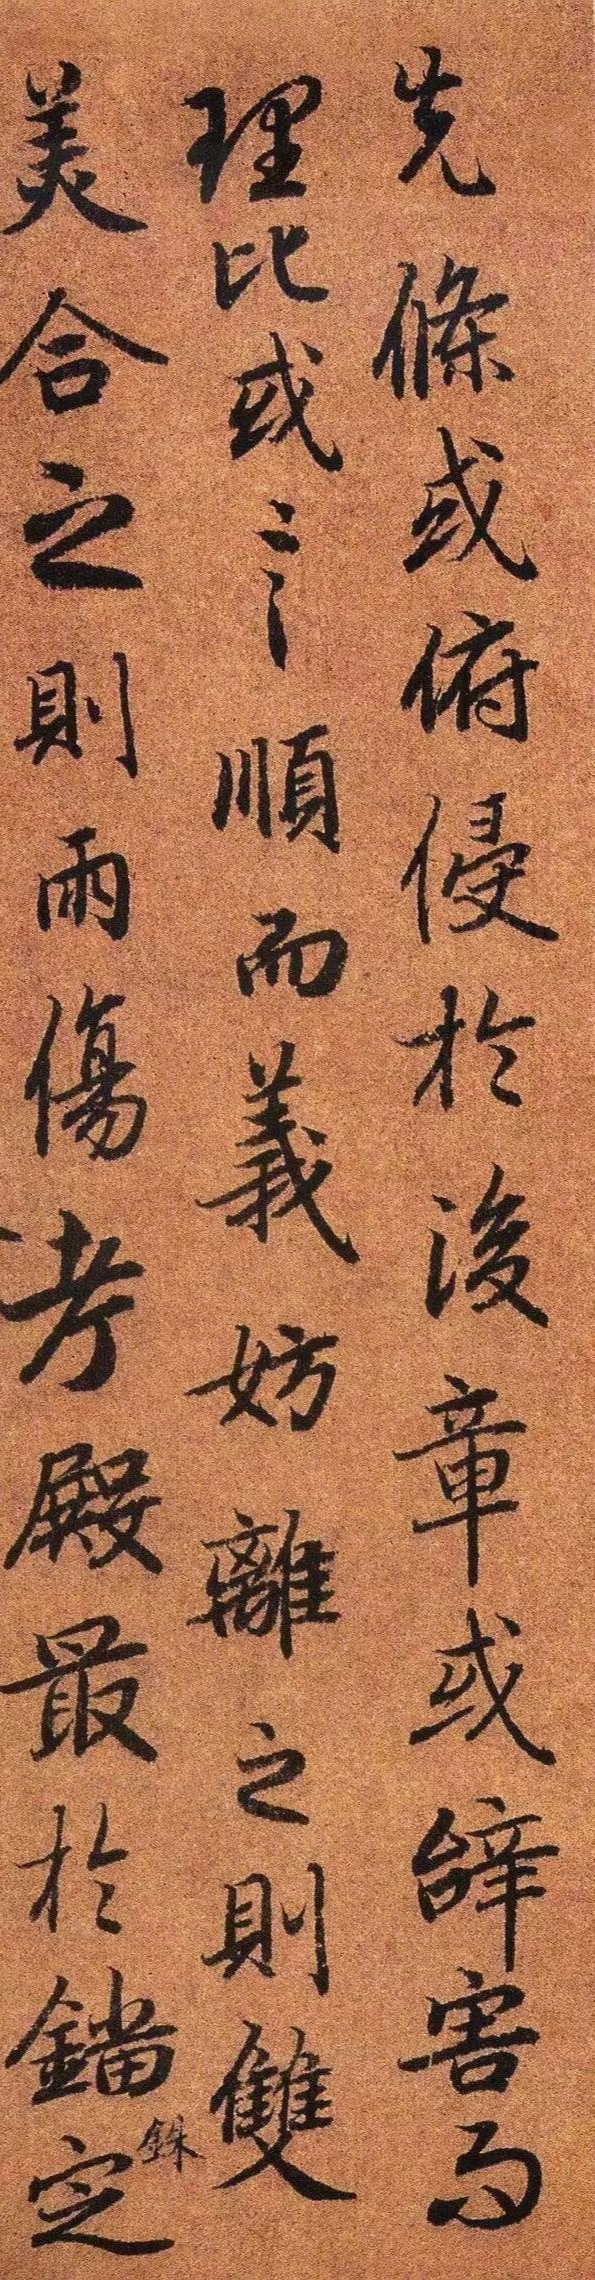 先條或俯侵於後章或辭害而
理比或言順而義妨離之則雙
美合之則兩傷考殿最於錙銖定